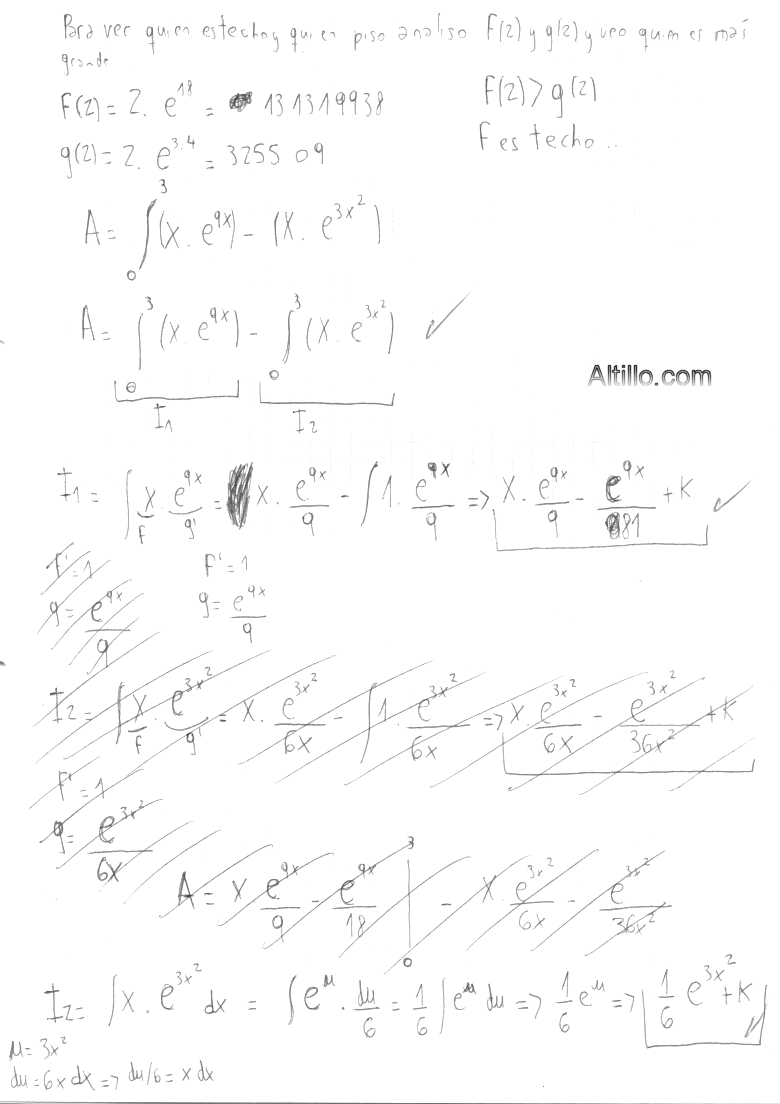 Para ver quien es techo y quien piso analiso F(2) y g(2) y veo quien es más
grande
F(2) = 2 . e^18 = 131319938
F(2) > g(2)
g(2) = 2 . e^3.4 = 3255 09
F es techo..
A = ∫_0^3 (X . e^9x) - (X . e^3x^2)
A = ∫_0^3 (X . e^9x) - ∫_0^3 (X . e^3x^2) ✓
I1 I2
Altillo.com
I1 = ∫ X . e^9x = X . e^9x/9 - ∫ 1 . e^9x/9 => X . e^9x/9 - e^9x/81 + K ✓
F g'
F' = 1 F' = 1
g = e^9x/9 g = e^9x/9
I2 = ∫ X . e^3x^2 = X . e^3x^2/6x - ∫ 1 . e^3x^2/6x => X . e^3x^2/6x - e^3x^2/36x^2 + K
F g'
F' = 1
g = e^3x^2/6x
A = X e^9x/9 - e^9x/18 |_0^3 - X . e^3x^2/6x - e^3x^2/36x^2
I2 = ∫ X . e^3x^2 dx = ∫ e^u . du/6 = 1/6 ∫ e^u du => 1/6 e^u => 1/6 e^3x^2 + K ✓
u = 3x^2
du = 6x dx => du/6 = x dx